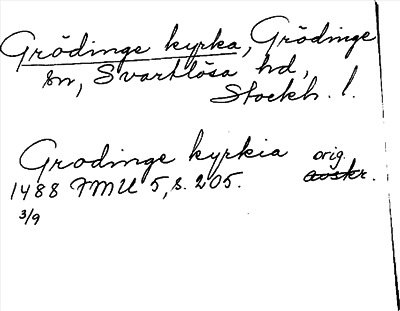 Grödinge kyrka, Grödinge
sn, Svartlösa hd,
Stockh. l.
Grodinge kyrkia orig.
1488 FMU 5, s. 205. avskr.
3/9